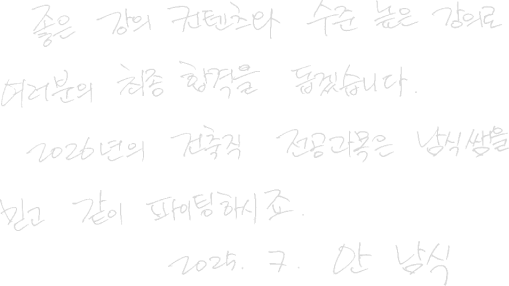 좋은 강의 컨텐츠와 수준 높은 강의로
여러분의 최종 합격을 돕겠습니다.
2026년의 건축직 전공과목은 남식쌤을
믿고 같이 파이팅하시죠.
2025. 7. 안 남식